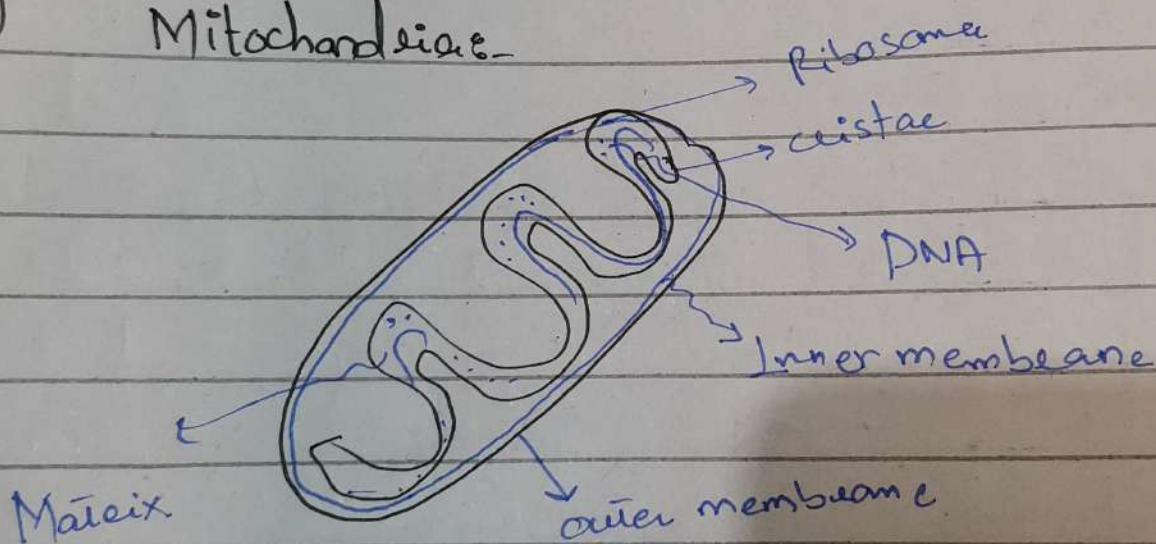 Mitochondria:-
Ribosome
cristae
DNA
Inner membrane
Matrix
outer membrane